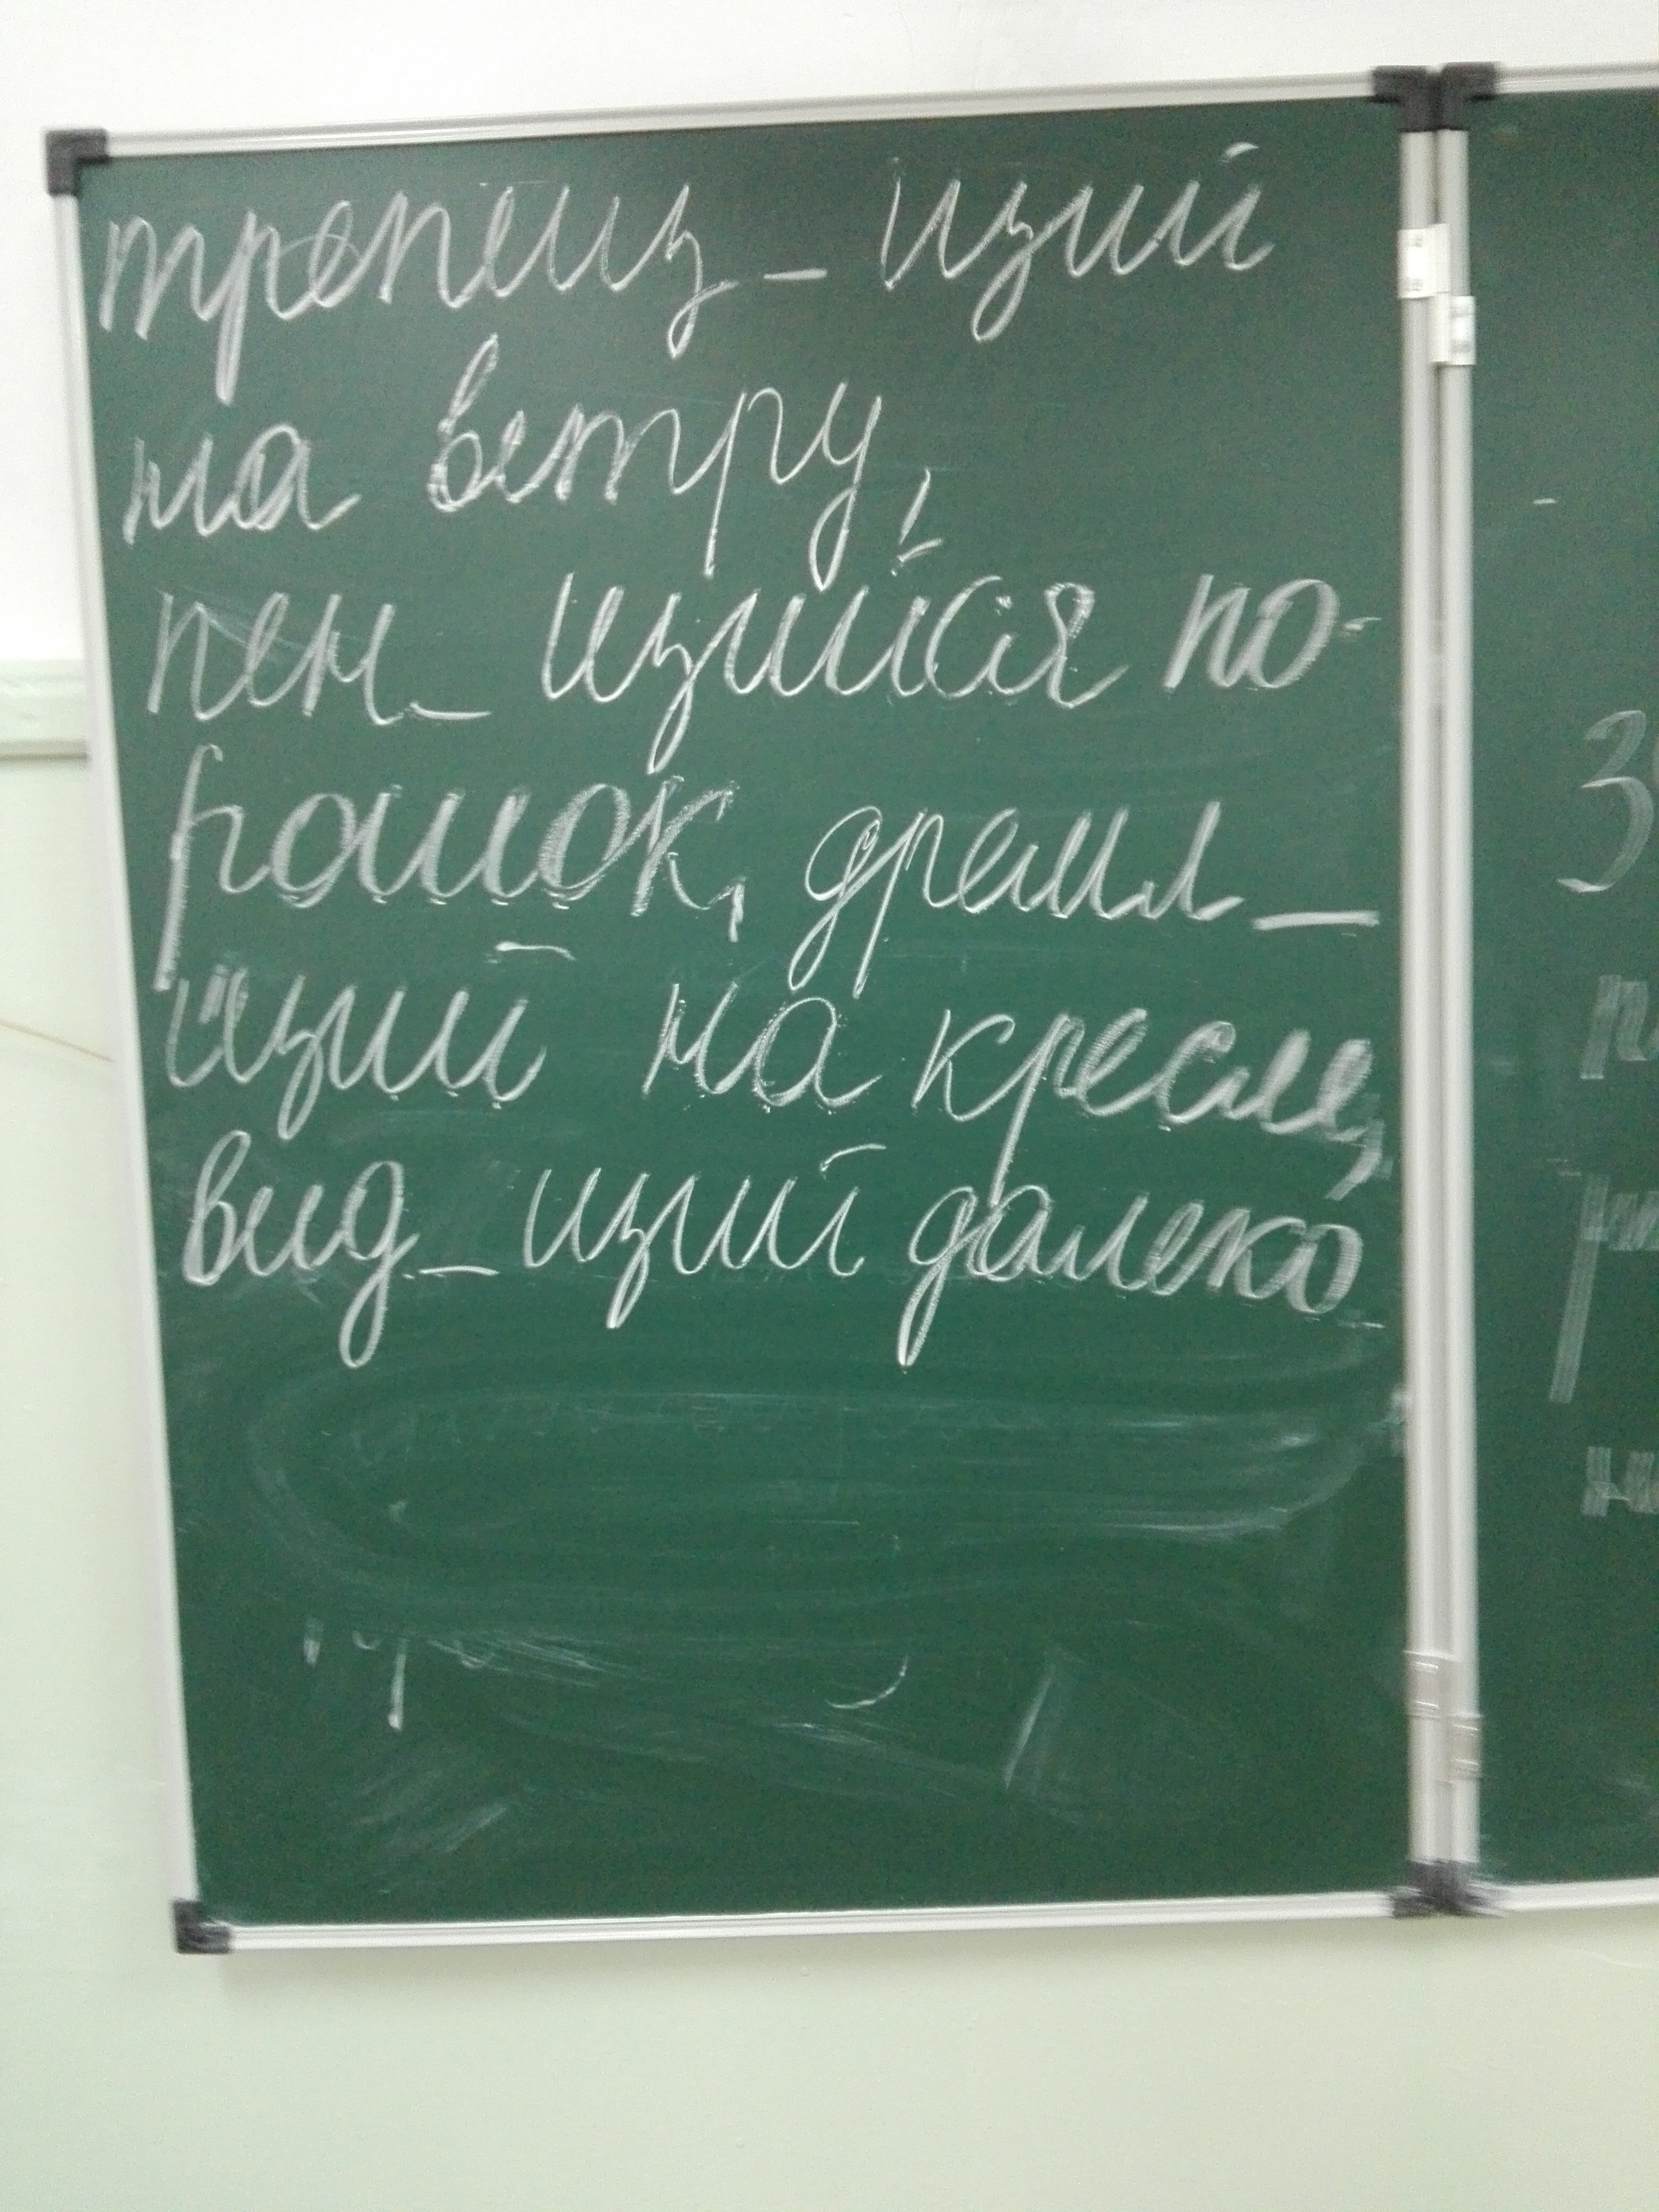 трепещ_щий
на ветру,
пен_щийся по-
рошок, дремл_
щий на кресле,
вид_щий далеко